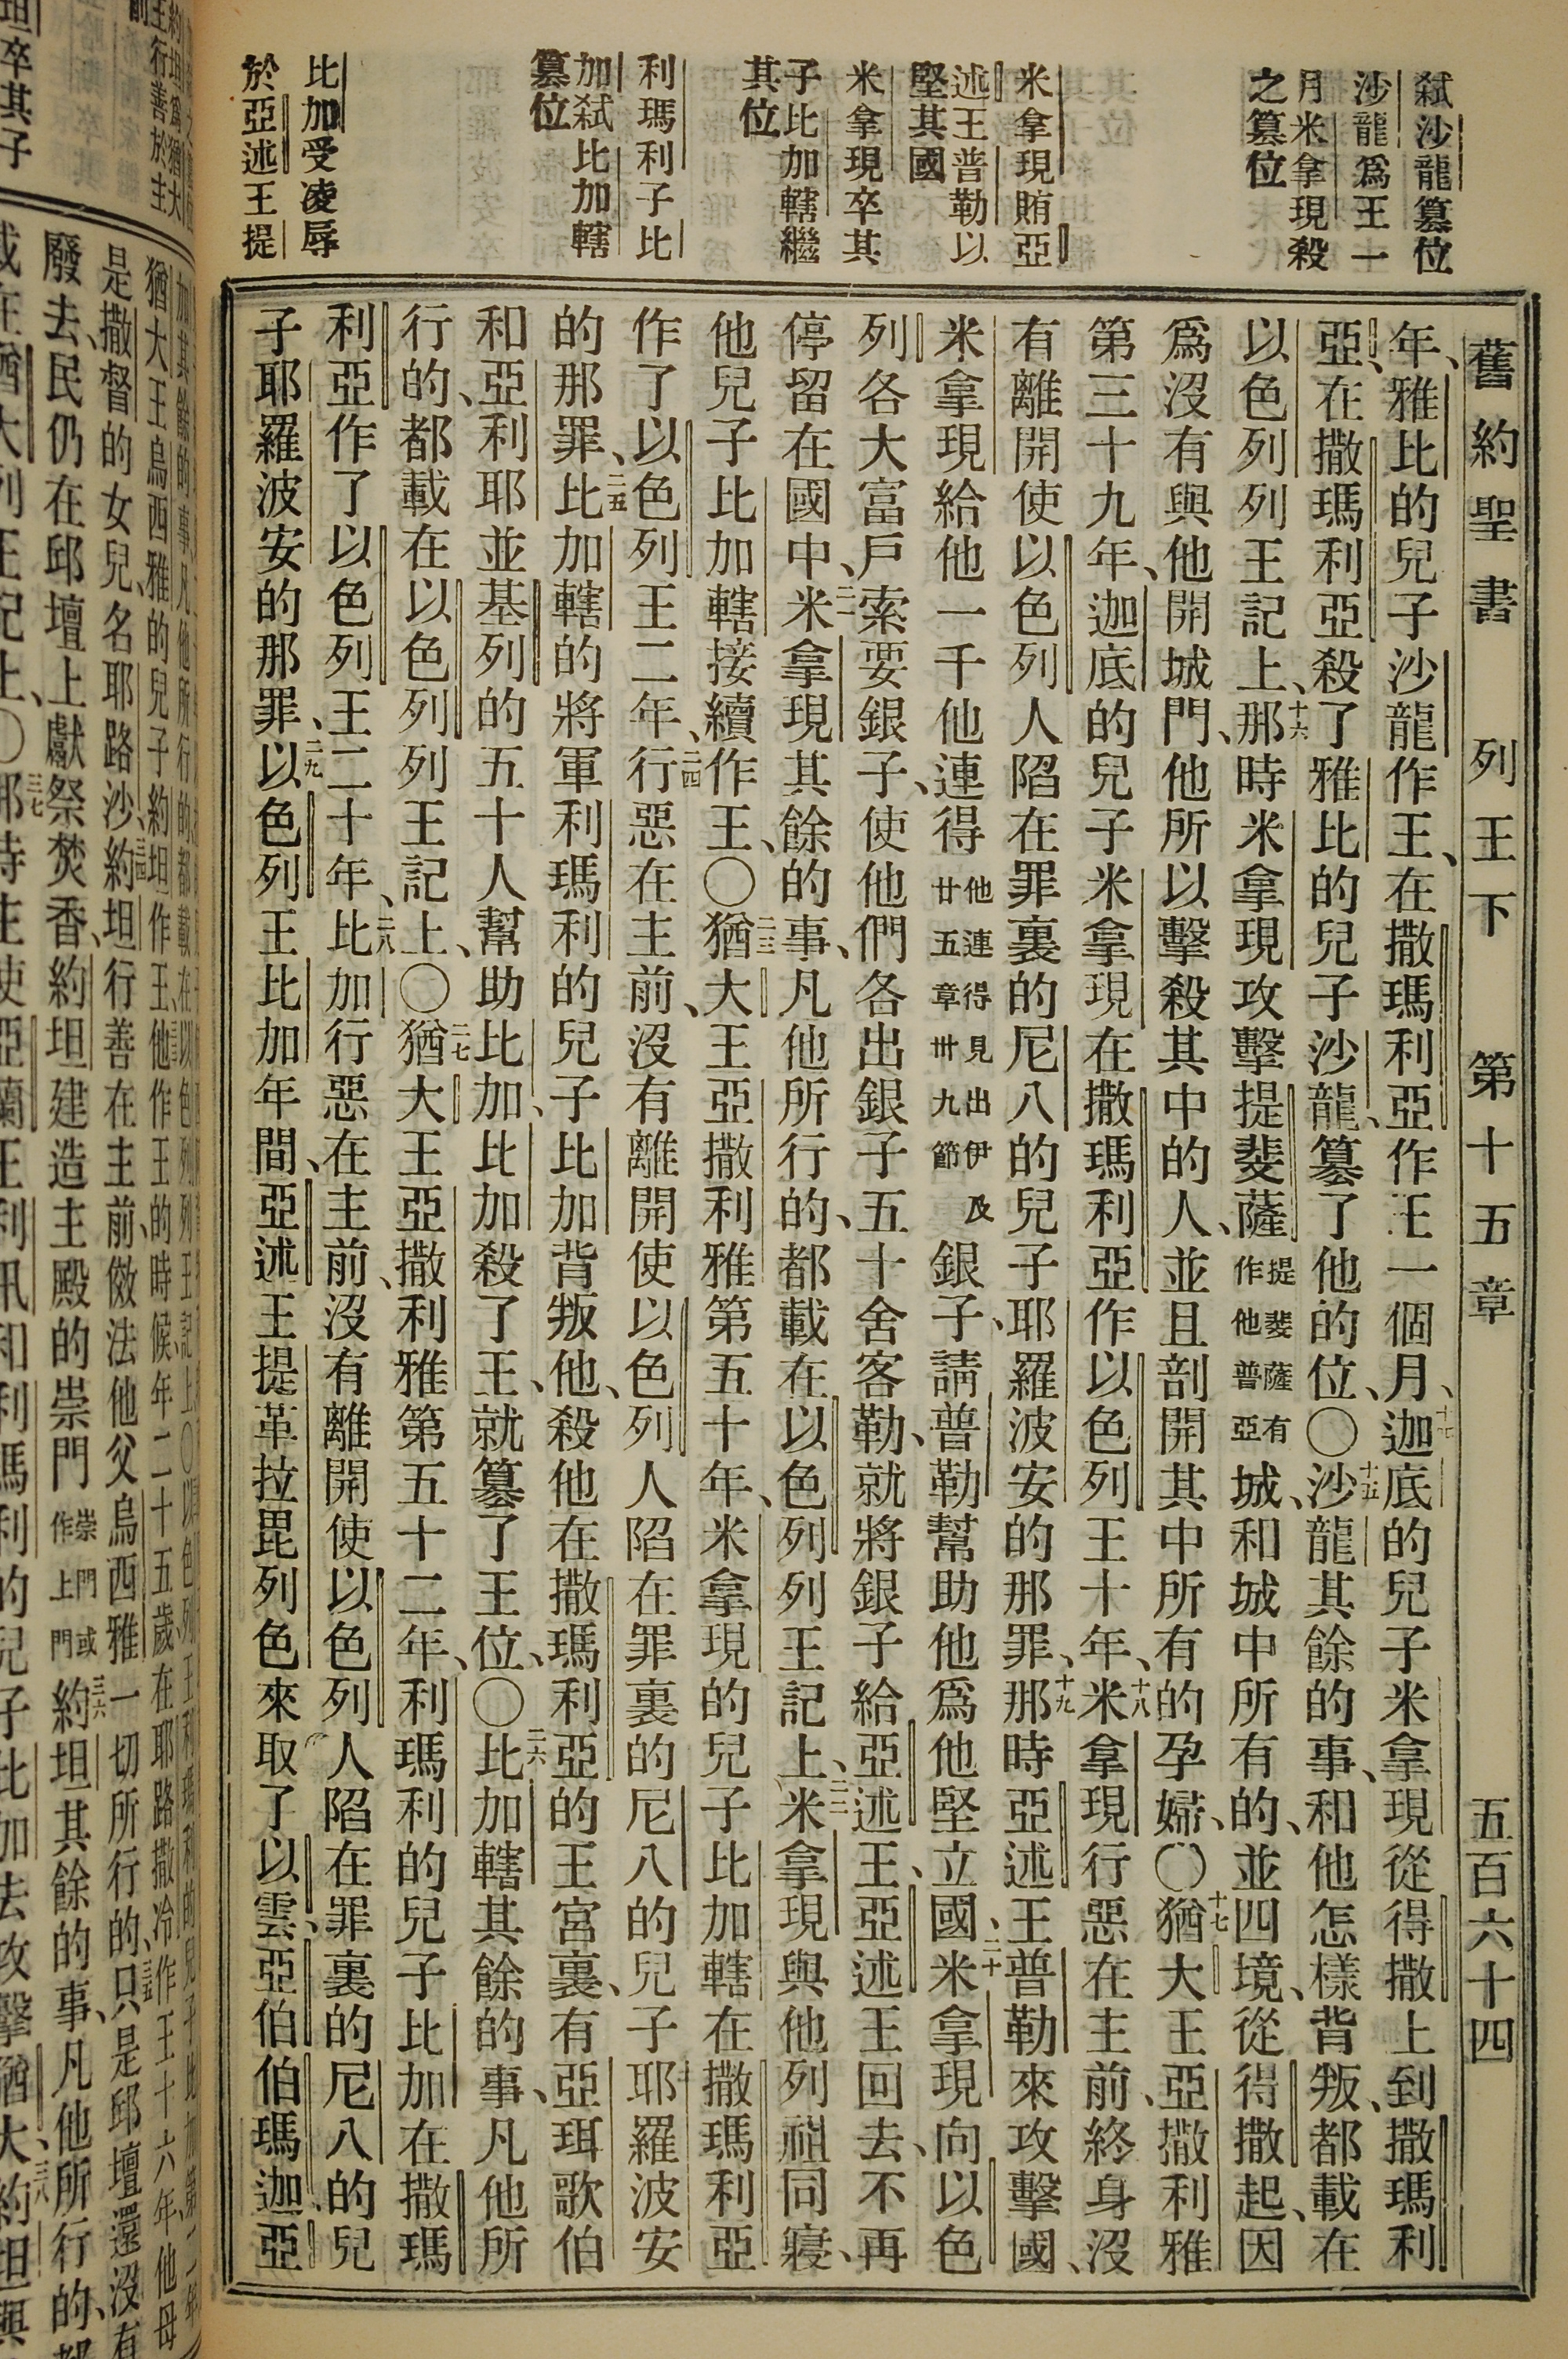 舊約聖書 列王下 第十五章 五百六十四
弑沙龍篡位
沙龍爲王一
月米拿現殺
之篡位
米拿現賄亞
述王普勒以
堅其國
米拿現卒其
子比加轄繼
其位
利瑪利子比
加弑比加轄
篡位
比加受凌辱
於亞述王提
年、雅比的兒子沙龍作王、在撒瑪利亞作王一個月、十七迦底的兒子米拿現從得撒上到撒瑪利
亞、在撒瑪利亞殺了雅比的兒子沙龍、篡了他的位、〇十五沙龍其餘的事、和他怎樣背叛、都載在
以色列列王記上、十六那時米拿現攻擊提斐薩提斐薩有作他普亞城、和城中所有的、並四境、從得撒起、因
爲沒有與他開城門、他所以擊殺其中的人、並且剖開其中所有的孕婦、〇十七猶大王亞撒利雅
第三十九年、迦底的兒子米拿現在撒瑪利亞作以色列王十年、十八米拿現行惡在主前、終身沒
有離開使以色列人陷在罪裏的尼八的兒子耶羅波安的那罪、十九那時亞述王普勒來攻擊國、
米拿現給他一千他連得他連得見出伊及廿五章卅九節銀子、請普勒幫助他爲他堅立國、二十米拿現向以色
列各大富戶索要銀子、使他們各出銀子五十舍客勒、就將銀子給亞述王、亞述王回去、不再
停留在國中、二一米拿現其餘的事、凡他所行的、都載在以色列列王記上、二二米拿現與他列祖同寢、
他兒子比加轄接續作王、〇二三猶大王亞撒利雅第五十年、米拿現的兒子比加轄在撒瑪利亞
作了以色列王二年、二四行惡在主前、沒有離開使以色列人陷在罪裏的尼八的兒子耶羅波安
的那罪、二五比加轄的將軍利瑪利的兒子比加背叛他、殺他在撒瑪利亞的王宮裏、有亞珥歌伯
和亞利耶並基列的五十人幫助比加、比加殺了王、就篡了王位、〇二六比加轄其餘的事、凡他所
行的、都載在以色列列王記上、〇二七猶大王亞撒利雅第五十二年、利瑪利的兒子比加在撒瑪
利亞作了以色列王二十年、二八比加行惡在主前、沒有離開使以色列人陷在罪裏的尼八的兒
子耶羅波安的那罪、二九以色列王比加年間、亞述王提革拉毘列色來取了以雲、亞伯伯瑪迦、亞
加其餘的事凡他所行的都載在以色列列王記上〇以色列王利瑪利的兒子比加第二年
猶大王烏西雅的兒子約坦作王、他作王的時候年二十五歲在耶路撒冷作王十六年、他母
是撒督的女兒、名耶路沙、三四約坦行善在主前、傚法他父烏西雅一切所行的、三五只是邱壇還沒有
廢去、民仍在邱壇上獻祭焚香、約坦建造主殿的崇門崇門或作上門三六約坦其餘的事、凡他所行的、都
載在猶大列王記上、〇三七那時主使亞蘭王利汛和利瑪利的兒子比加去攻擊猶大、三八約坦與